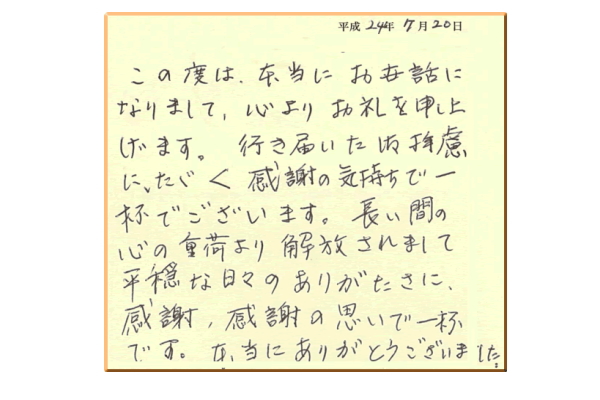 平成 24年 7月20日
この度は、本当に お世話に
なりまして、心より お礼を申し上
げます。 行き届いた御配慮
に、たゞ〱 感謝の気持ちで一
杯でございます。長い間の
心の重荷より 解放されまして
平穏な日々の ありがたさに、
感謝、感謝の思いで一杯
です。本当にありがとうございました。